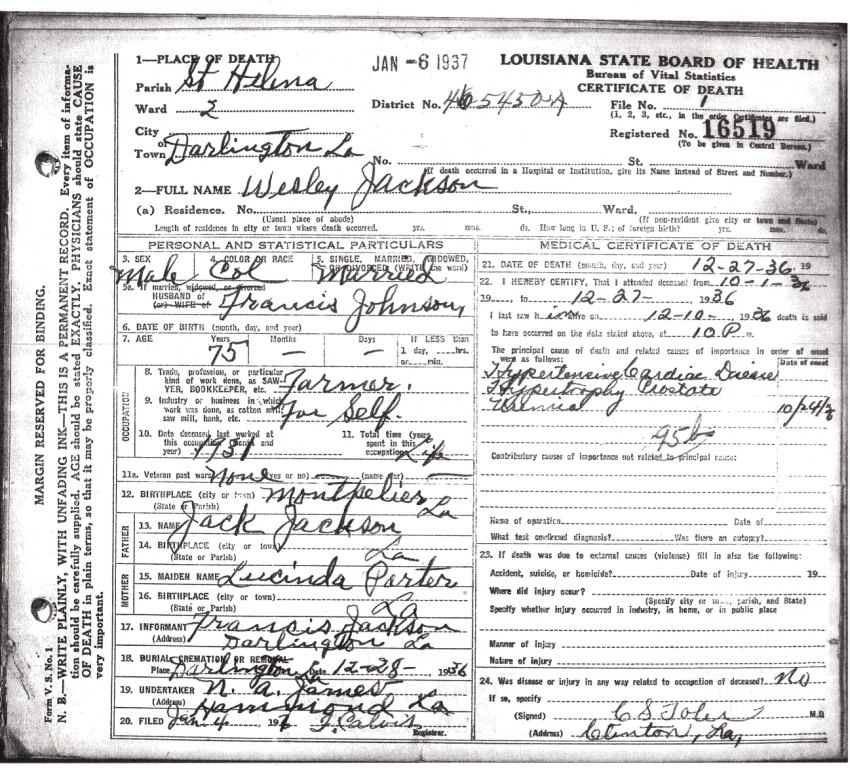 JAN -6 1937
LOUISIANA STATE BOARD OF HEALTH
Bureau of Vital Statistics
CERTIFICATE OF DEATH
1—PLACE OF DEATH
Parish St Helena
Ward 2
District No. 5450-A
File No. 1
(1, 2, 3, etc., in the order Certificates are filed.)
Registered No. 16519
(To be given in Central Bureau.)
City
or
Town Darlington La No. St. Ward
(If death occurred in a Hospital or Institution, give its Name instead of Street and Number.)
2—FULL NAME Wesley Jackson
(a) Residence. No. St., Ward.
(Usual place of abode) (If non-resident give city or town and State)
Length of residence in city or town where death occurred. yrs. mos. ds. How long in U. S.; of foreign birth? yrs. mos. ds.
PERSONAL AND STATISTICAL PARTICULARS
3. SEX 4. COLOR OR RACE 5. SINGLE, MARRIED, WIDOWED, OR DIVORCED (WRITE the word)
Male Col Married
5a. If married, widowed, or divorced
HUSBAND of
(or) WIFE of Francis Johnson,
6. DATE OF BIRTH (month, day, and year)
7. AGE Years Months Days If LESS than
75 — — 1 day, hrs.
or min.
OCCUPATION
8. Trade, profession, or particular
kind of work done, as SAW-
YER, BOOKKEEPER, etc. Farmer.
9. Industry or business in which
work was done, as cotton mill,
saw mill, bank, etc. For Self.
10. Date deceased last worked at
this occupation (month and
year) 1931
11. Total time (years)
spent in this
occupation Life
11a. Veteran past wars None (yes or no) — (name war) —
12. BIRTHPLACE (city or town) Montpelier
(State or Parish) La
FATHER
13. NAME Jack Jackson
14. BIRTHPLACE (city or town)
(State or Parish) La
MOTHER
15. MAIDEN NAME Lucinda Parter
16. BIRTHPLACE (city or town)
(State or Parish) La
17. INFORMANT Francis Jackson
(Address) Darlington La
18. BURIAL, CREMATION OR REMOVAL
Place Darlington La Date 12-28- 1936
19. UNDERTAKER N. A. James
(Address) Hammond La
20. FILED Jan 4 1937 Calvis
Registrar.
MEDICAL CERTIFICATE OF DEATH
21. DATE OF DEATH (month, day, and year) 12-27-36. 19
22. I HEREBY CERTIFY, That I attended deceased from 10-1-36
19 , to 12-27- , 1936
I last saw h im alive on 12-10- , 1936 death is said
to have occurred on the date stated above, at 10 P m.
The principal cause of death and related causes of importance in order of onset
were as follows: Date of onset
Hypertensive Cardiac Disease
Hypertrophy Prostate
Uremia 10/24/36
95b
Contributory causes of importance not related to principal cause:
Name of operation Date of
What test confirmed diagnosis? Was there an autopsy?
23. If death was due to external causes (violence) fill in also the following:
Accident, suicide, or homicide? Date of injury 19
Where did injury occur?
(Specify city or town, parish, and State)
Specify whether injury occurred in industry, in home, or in public place
Manner of injury
Nature of injury
24. Was disease or injury in any way related to occupation of deceased? No
If so, specify
(Signed) C S Toler M.D
(Address) Clinton, La,
MARGIN RESERVED FOR BINDING.
N. B.—WRITE PLAINLY, WITH UNFADING INK—THIS IS A PERMANENT RECORD. Every item of informa-
tion should be carefully supplied. AGE should be stated EXACTLY. PHYSICIANS should state CAUSE
OF DEATH in plain terms, so that it may be properly classified. Exact statement of OCCUPATION is
very important.
Form V. S. No. 1